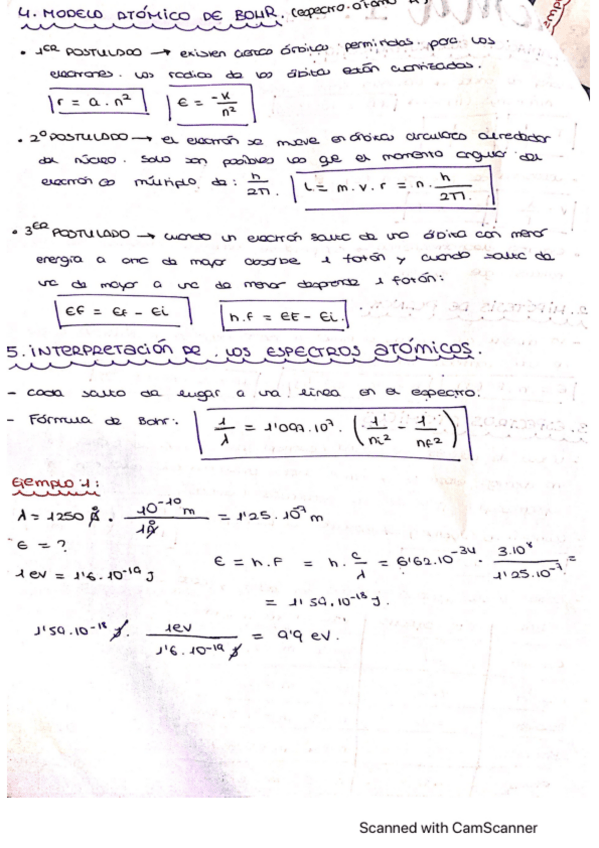 4. MODELO ATÓMICO DE BOHR. (espectro. átomo
· 1ER POSTULADO → existen ciertas órbitas permitidas para los
electrones. Los radios de las órbitas están cuantizadas.
r = a · n² E = -K/n²
· 2º POSTULADO → el electrón se mueve en órbitas circulares alrededor
del núcleo. Solo son posibles las qe el momento angular del
electrón es múltiplo de: h/2π. L = m.v.r = n. h/2π.
· 3ER POSTULADO → cuando un electrón salta de una órbita con menor
energía a una de mayor absorbe 1 fotón y cuando salta de
una de mayor a una de menor desprende 1 fotón:
Ef = Ef - Ei h.f = Ef - Ei.
5. INTERPRETACIÓN DE LOS ESPECTROS ATÓMICOS.
- Cada salto da lugar a una línea en el espectro.
- Fórmula de Bohr: 1/λ = 1'097.10⁷. (1/ni² - 1/nf²)
Ejemplo 1:
λ = 1250 Å · 10⁻¹⁰ m / 1Å = 1'25.10⁻⁷ m
E = ?
1 eV = 1'6.10⁻¹⁹ J
E = h.f = h. c/λ = 6'62.10⁻³⁴ · 3.10⁸ / 1'25.10⁻⁷ =
= 1'59.10⁻¹⁸ J.
1'59.10⁻¹⁸ J. 1eV / 1'6.10⁻¹⁹ J = 9'9 eV.
Scanned with CamScanner